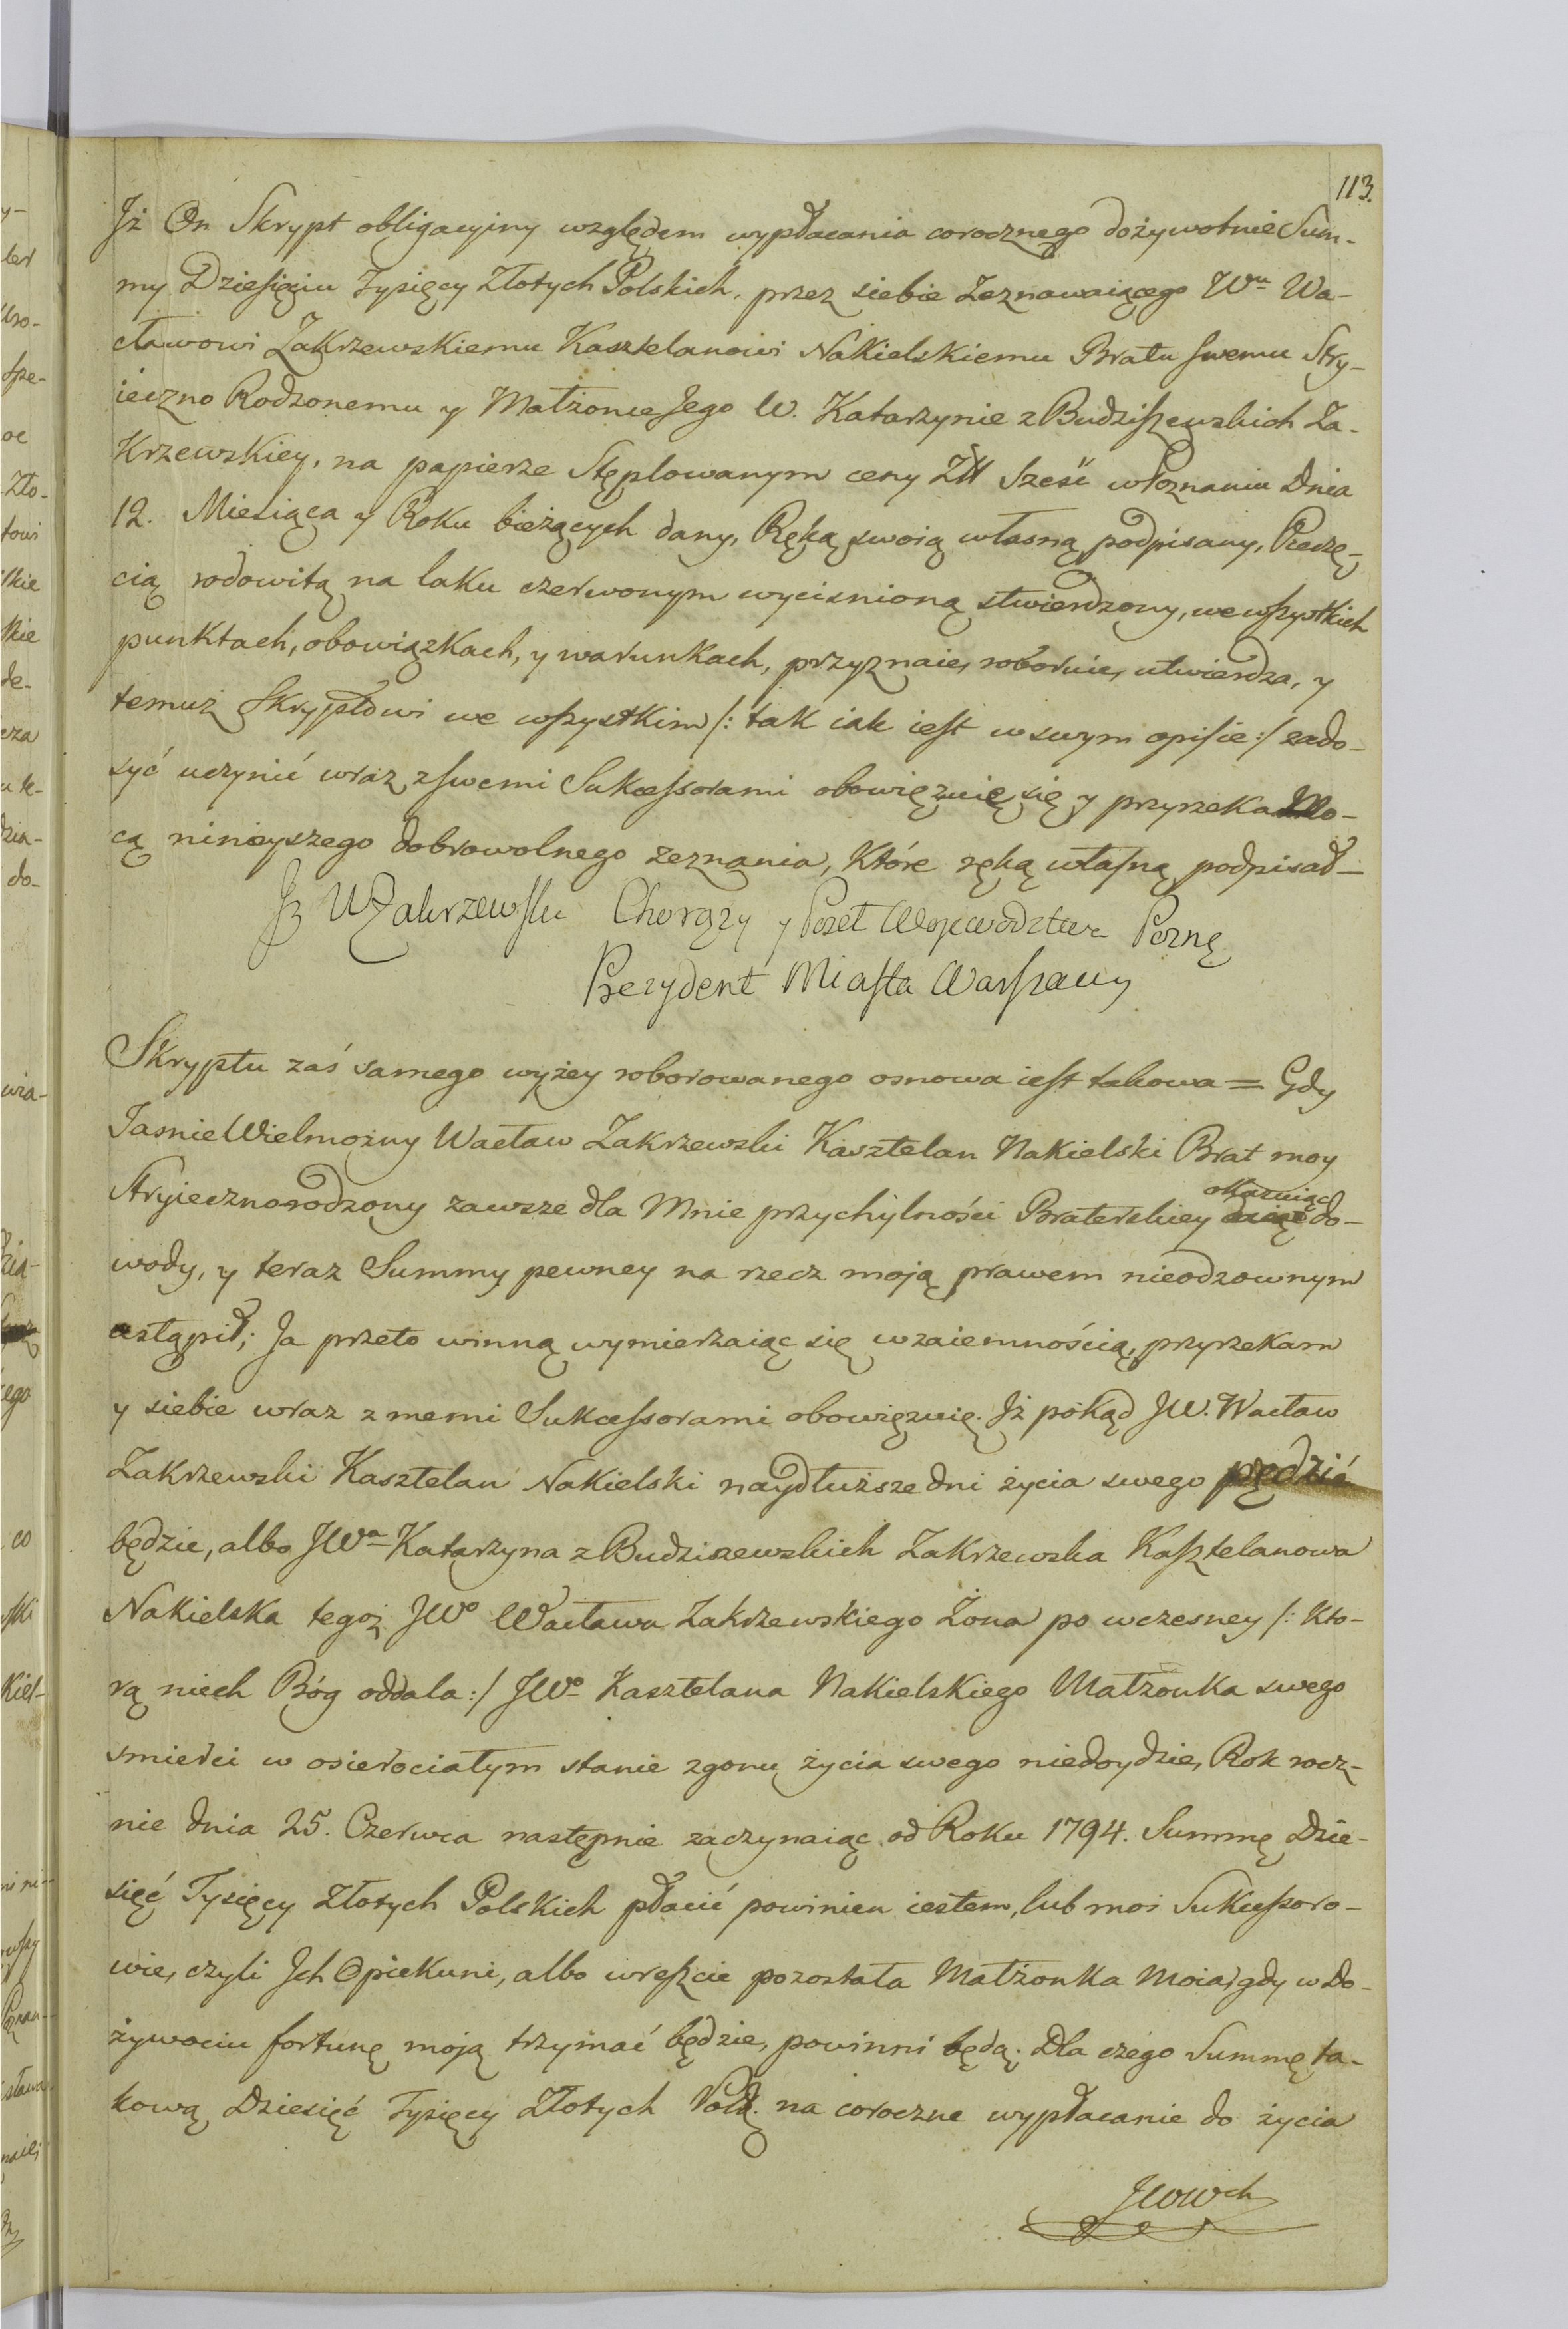 113.
Jż On Skrypt obligacyiny względem wypłacania corocznego dożywotnie Sum-
my Dziesięciu Tysięcy Złotych Polskich, przez siebie Zeznawaiącego Wu Wa-
cławowi Zakrzewskiemu Kasztelanowi Nakielskiemu Bratu swemu Stry-
ieczno Rodzonemu y Małżonce Jego W. Katarzynie z Budziszewskich Za-
krzewskiey, na papierze Stęplowanym ceny Złł Sześć w Poznaniu Dnia
12. Miesiąca y Roku bieżących dany, Ręką swoią własną podpisany, Pieczę-
cią rodowitą na laku czerwonym wycisnioną stwierdzony, we wszystkich
punktach, obowiązkach, y warunkach, przyznaie, roboruie, utwierdza, y
temuż Skryptowi we wszystkim /: tak iak iest w swym opisie :/ zado-
syć uczynić wraz z swemi Sukcessorami obowięzuię się y przyrzeka Mo-
cą ninieyszego dobrowolnego zeznania, które ręką własną podpisał –
J W Zakrzewski Chorąży y Poseł Województwa Pozną
Prezydent Miasta Warszawy
Skryptu zaś samego wyżey roborowanego osnowa iest takowa = Gdy
JasnieWielmożny Wacław Zakrzewski Kasztelan Nakielski Brat moy
Stryiecznorodzony zawsze dla Mnie przychylności Braterskiey okazuiąc do-
wody, y teraz Summy pewney na rzecz moją prawem nieodzownym
ustąpił; Ja przeto winną wymierzaiąc się wzaiemnością, przyrzekam
y siebie wraz z memi Sukcessorami obowięzuię. Jż pokąd JW. Wacław
Zakrzewski Kasztelan Nakielski naydłuższe dni życia swego pędzić
będzie, albo JWa Katarzyna z Budziszewskich Zakrzewska Kasztelanowa
Nakielska tegoż JWo Wacława Zakrzewskiego Żona po wczesney /: któ-
rą niech Bóg oddala :/ JWo Kasztelana Nakielskiego Małżonka swego
smierci w osierociałym stanie zgonu życia swego niedoydzie, Rok rocz-
nie dnia 25. Czerwca następnie zaczynaiąc od Roku 1794. Summę Dzie-
sięć Tysięcy Złotych Polskich płacić powinien iestem, lub moi Sukcessoro-
wie, czyli Jch Opiekuni, albo wreszcie pozostała Małżonka Moia, gdy w Do-
żywociu fortunę moją trzymać będzie, powinni będą. Dla czego Summę ta-
kową Dziesięć Tysięcy Złotych Polś. na coroczne wypłacanie do życia
JWWch